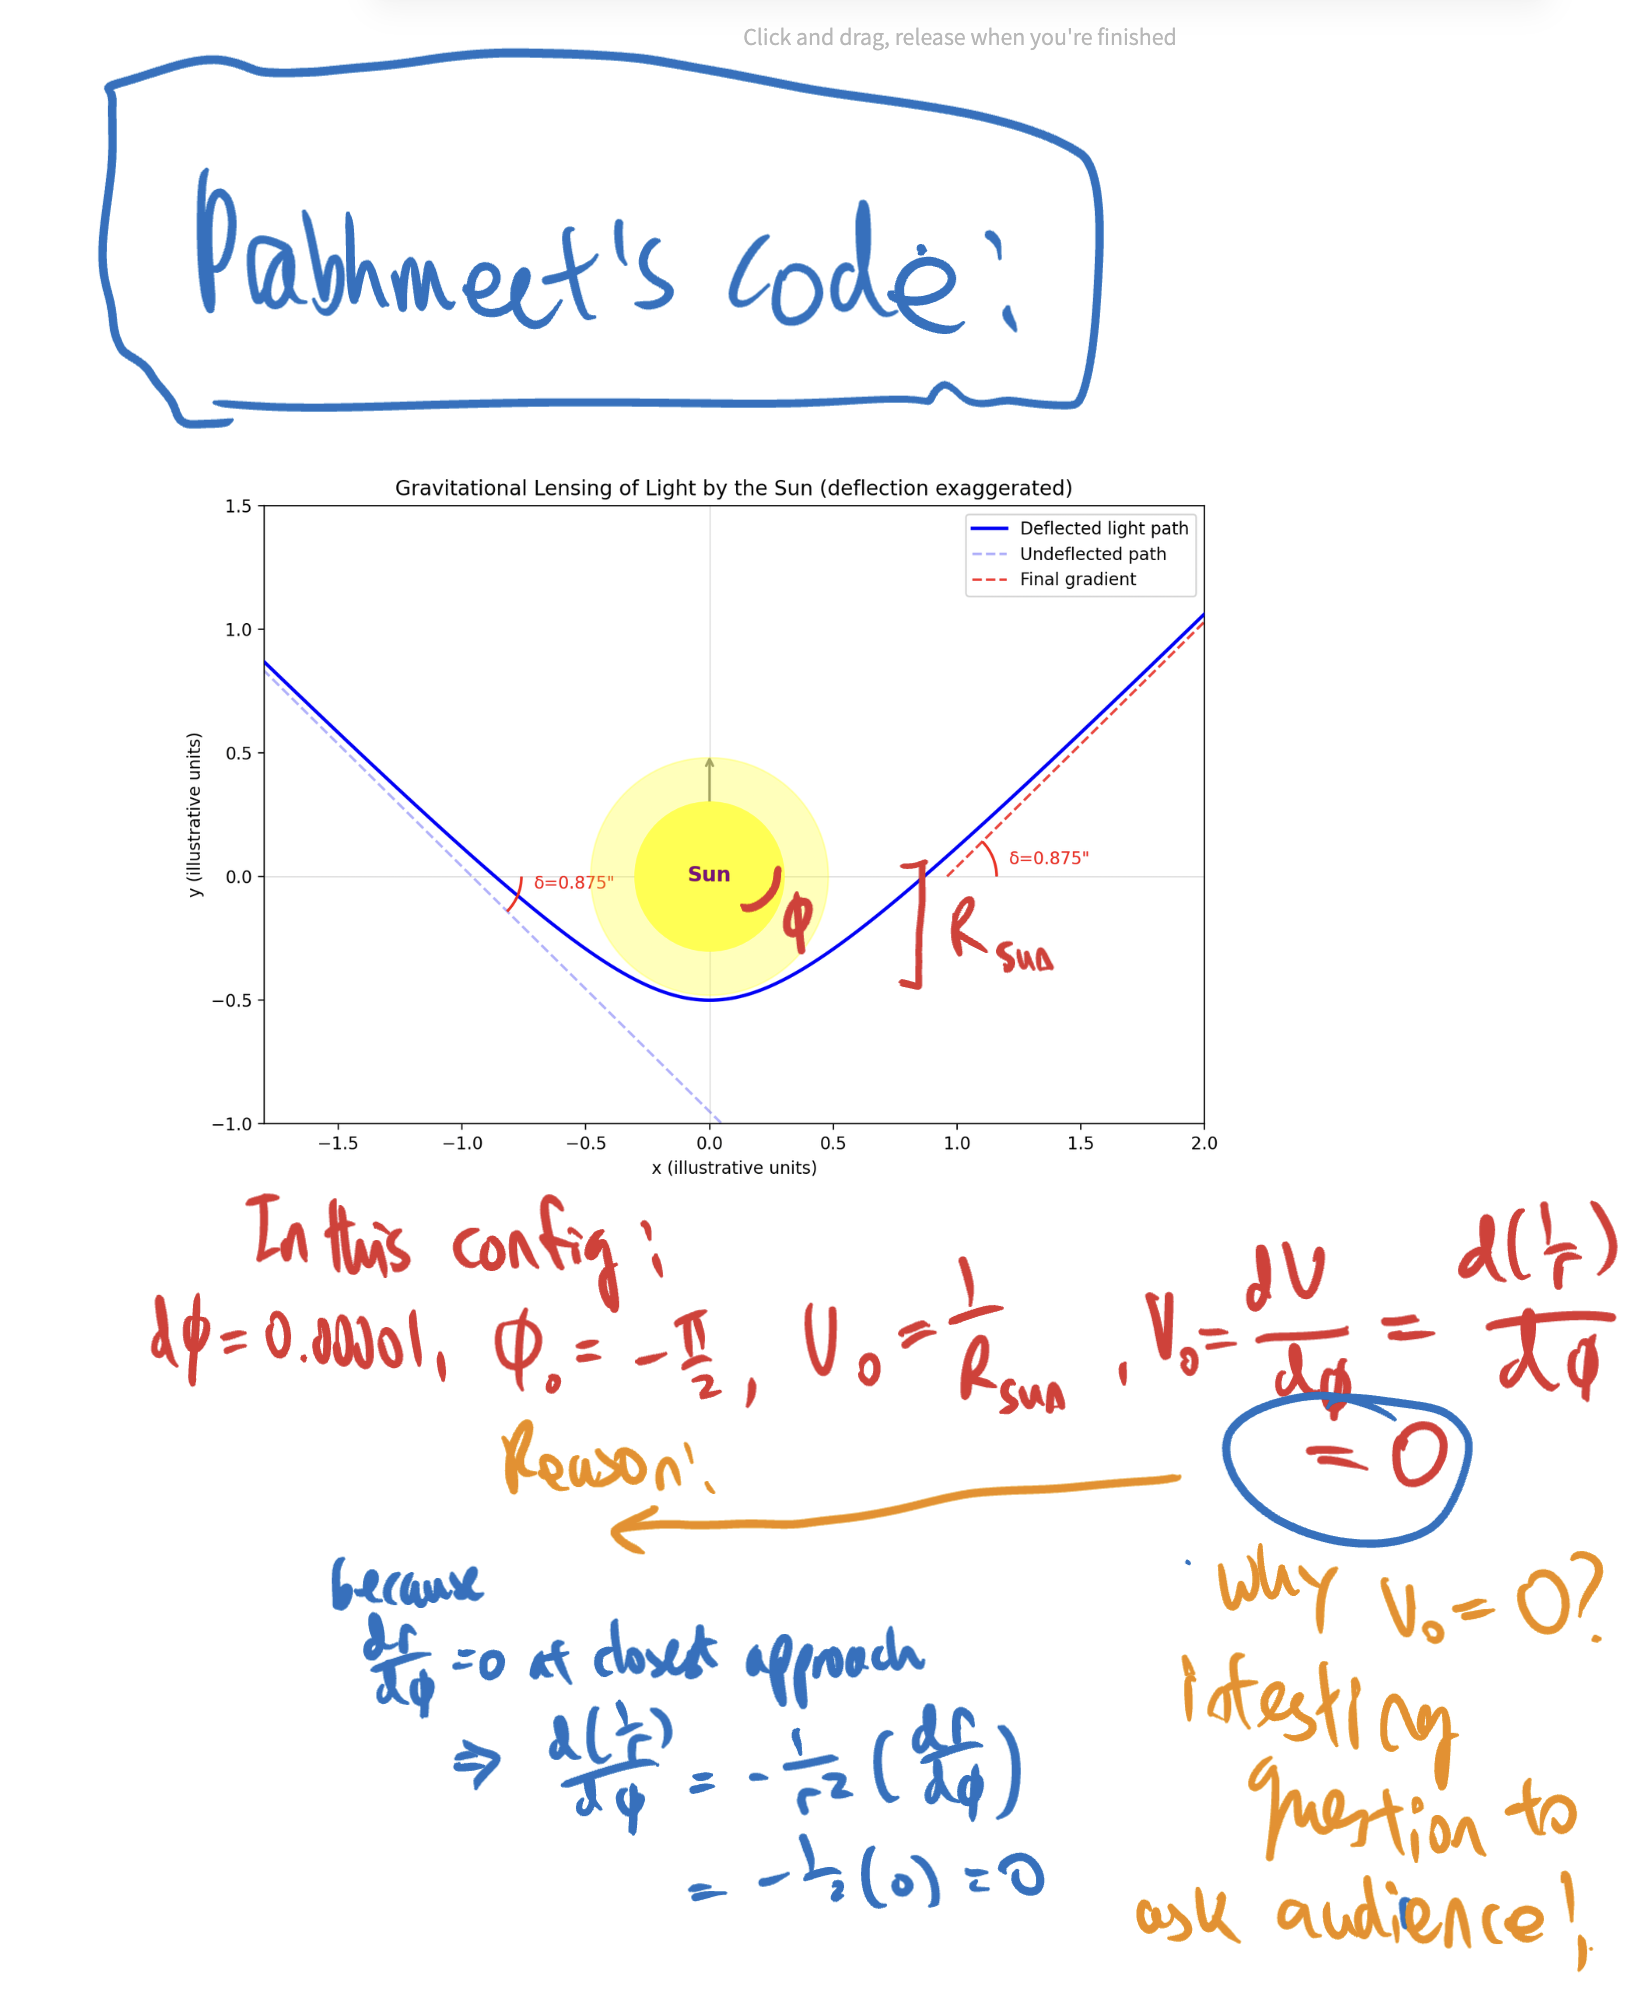 Click and drag, release when you're finished
Prabhmeet's code:
Gravitational Lensing of Light by the Sun (deflection exaggerated)
Deflected light path
Undeflected path
Final gradient
1.5
1.0
0.5
0.0
−0.5
−1.0
y (illustrative units)
Sun
δ=0.875"
δ=0.875"
ϕ
R sun
−1.5 −1.0 −0.5 0.0 0.5 1.0 1.5 2.0
x (illustrative units)
In this config:
dϕ = 0.00001, ϕ₀ = -π/2, U₀ = 1/R sun, V₀ = dU/dϕ = d(1/r)/dϕ
= 0
Reason:
because
dr/dϕ = 0 at closest approach
⇒ d(1/r)/dϕ = -1/r² (dr/dϕ)
= -1/2 (0) = 0
why V₀ = 0?
itesting
question to
ask audience!